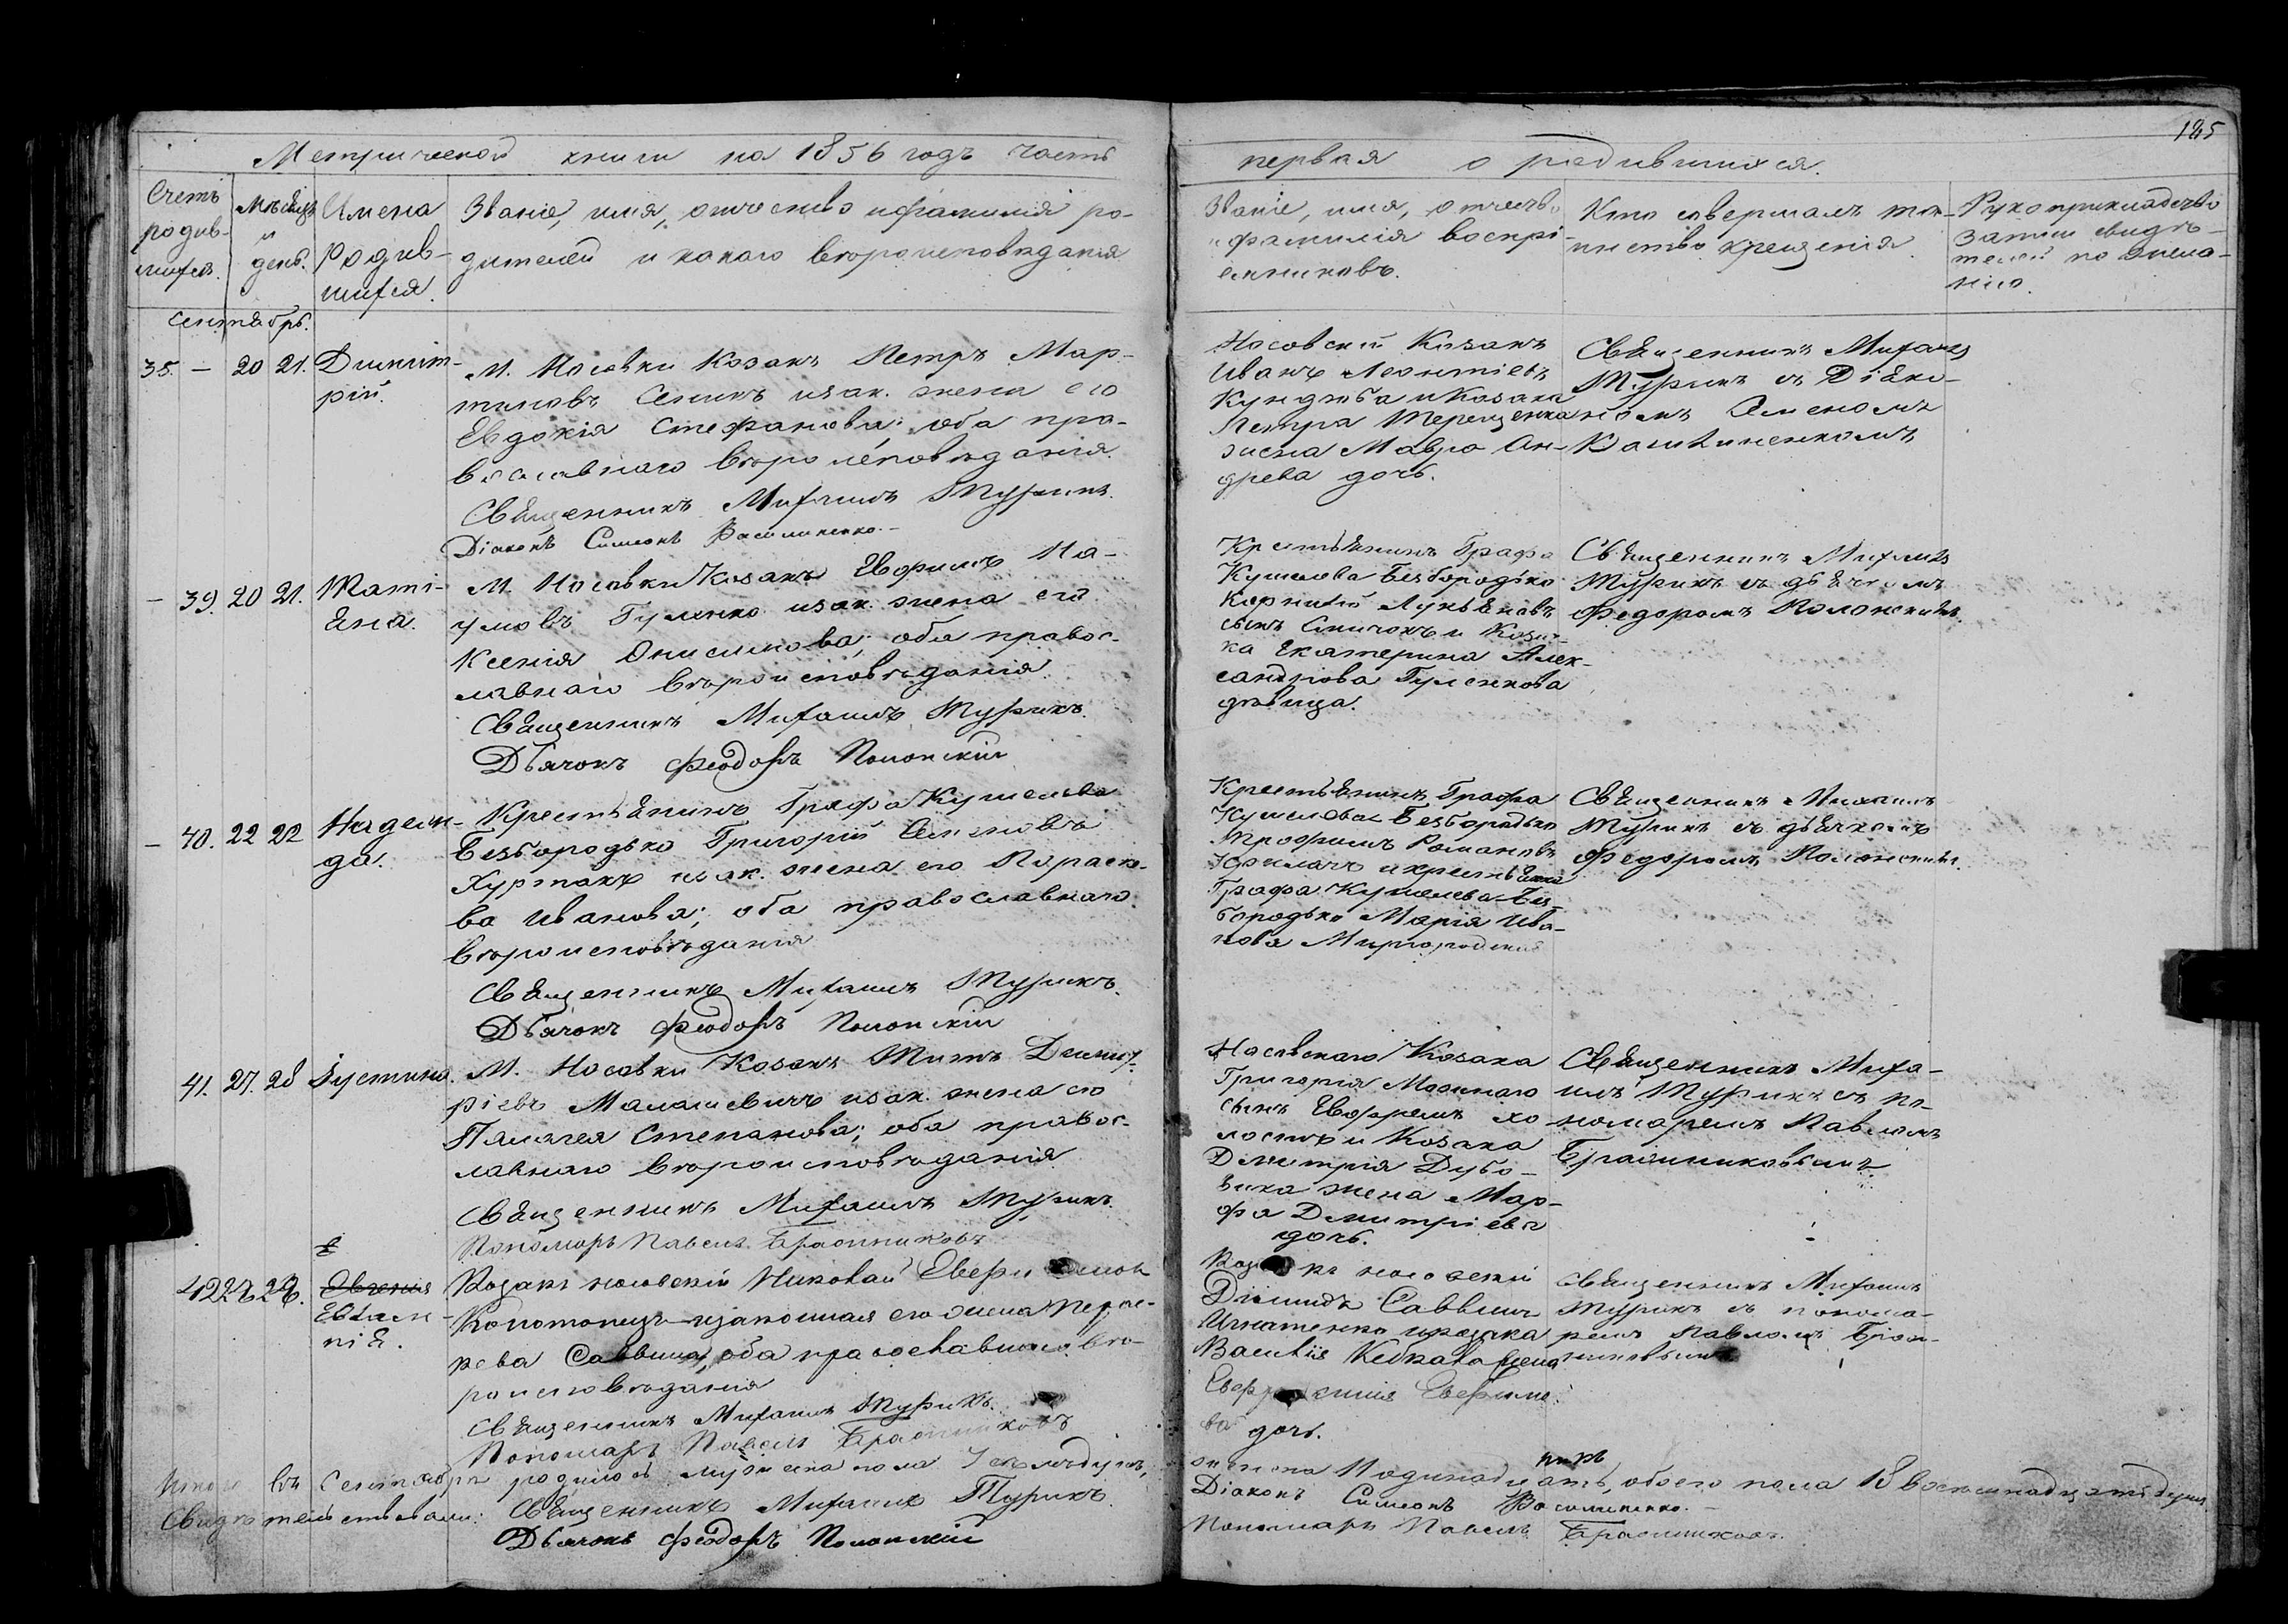 185
Метрической книги на 1856 годъ часть
первая о родившихся.
Счетъ
родив-
шихся.
Мѣсяцъ
и
день.
Имена
Родив-
шихся.
Званіе, имя, отчество и фамилія ро-
дителей и какого вѣроисповѣданія
Званіе, имя, отчеств
и фамилія воспрі-
емниковъ.
Кто совершалъ таи-
инство крещенія
Рукоприкладство
записи свидѣ-
телей по жела-
нію.
сентябрь.
38. — 20 21. Димит-
рій.
М. Носовки Козакъ Петръ Мар-
тиновъ Сеникъ изак. жена его
Евдокія Стефанова; оба пра-
вославнаго вѣроисповѣданія.
Священникъ Михаилъ Турикъ.
Діаконъ Симеонъ Василиненко.
Носовскій Козакъ
Иванъ Леонтіевъ
Кундюба и Козака
Петра Терещенка
жена Мавра Ан-
дреева дочь.
Священникъ Михаилъ
Турикъ съ Діако-
номъ Симеономъ
— 39. 20 21. Таті-
яна.
М. Носовки Козакъ Ефримъ На-
умовъ Гуленко изак. жена его
Ксенія Онисимова; оба правос-
лавнаго вѣроисповѣданія.
Священникъ Михаилъ Турикъ.
Дьячокъ Феодоръ Полонскій
Крестьянинъ Графа
Кушелева Безбородько
Корнилій Лукьяновъ
сынъ Смичокъ и Козач-
ка Екатерина Алек-
сандрова Гуленкова
дѣвица.
Священникъ Михаилъ
Турикъ съ дьячкомъ
Федоромъ Полонскимъ.
— 40. 22 22 Надеж-
да.
Крестьянинъ Графа Кушелева
Безбородько Григорій Семеновъ
Хурмакъ изак. жена его Параске-
ва Иванова; оба православнаго
вѣроисповѣданія
Священникъ Михаилъ Турикъ.
Дьячокъ Феодоръ Полонскій
Крестьянинъ Графа
Кушелева Безбородько
Трофимъ Романовъ
и крестьянка
Графа Кушелева-Без-
бородько Марія Ива-
нова Миргородская
Священникъ Михаилъ
Турикъ съ дьячкомъ
Федоромъ Полонскимъ.
41. 27. 28 Іустина.
М. Носовки Козакъ Титъ Димит-
ріевъ Малашевичъ изак. жена его
Пелагея Степанова; оба правос-
лавнаго вѣроисповѣданія
Священникъ Михаилъ Турикъ.
Пономарь Павелъ Брасниковъ
Носовскаго Козака
Григорія
сынъ Евфремъ хо-
лостъ и Козака
Дмитрія Дубо-
вика жена Мар-
фа Дмитріева
дочь.
Священникъ Миха-
илъ Турикъ съ по-
номаремъ Павломъ
Брасниковымъ.
42 27 28. Евгенія
Евлам-
пія.
Козакъ носовскій Николай
Конотопецъ изаконная его жена
Саввина, оба православнаго вѣ-
роисповѣданія
Священникъ Михаилъ Турикъ.
Пономарь Павелъ Брасниковъ
Козакъ носовскій
Діомидъ Саввинъ
Игнатенко и козака
Василія жена
Евфросинія Ефимо-
ва дочь.
Священникъ Михаилъ
Турикъ съ понома-
ремъ Павломъ Брас-
никовымъ
Итого въ Сентябрѣ родилось мужеска пола 7 семь душъ,
женска 11 одинадцать, обоего пола 18 восемнадцать душъ
Свидѣтельствовали: Священникъ Михаилъ Турикъ.
Діаконъ Симеонъ Василиненко.
Дьячокъ Феодоръ Полонскій
Пономарь Павелъ Брасниковъ.